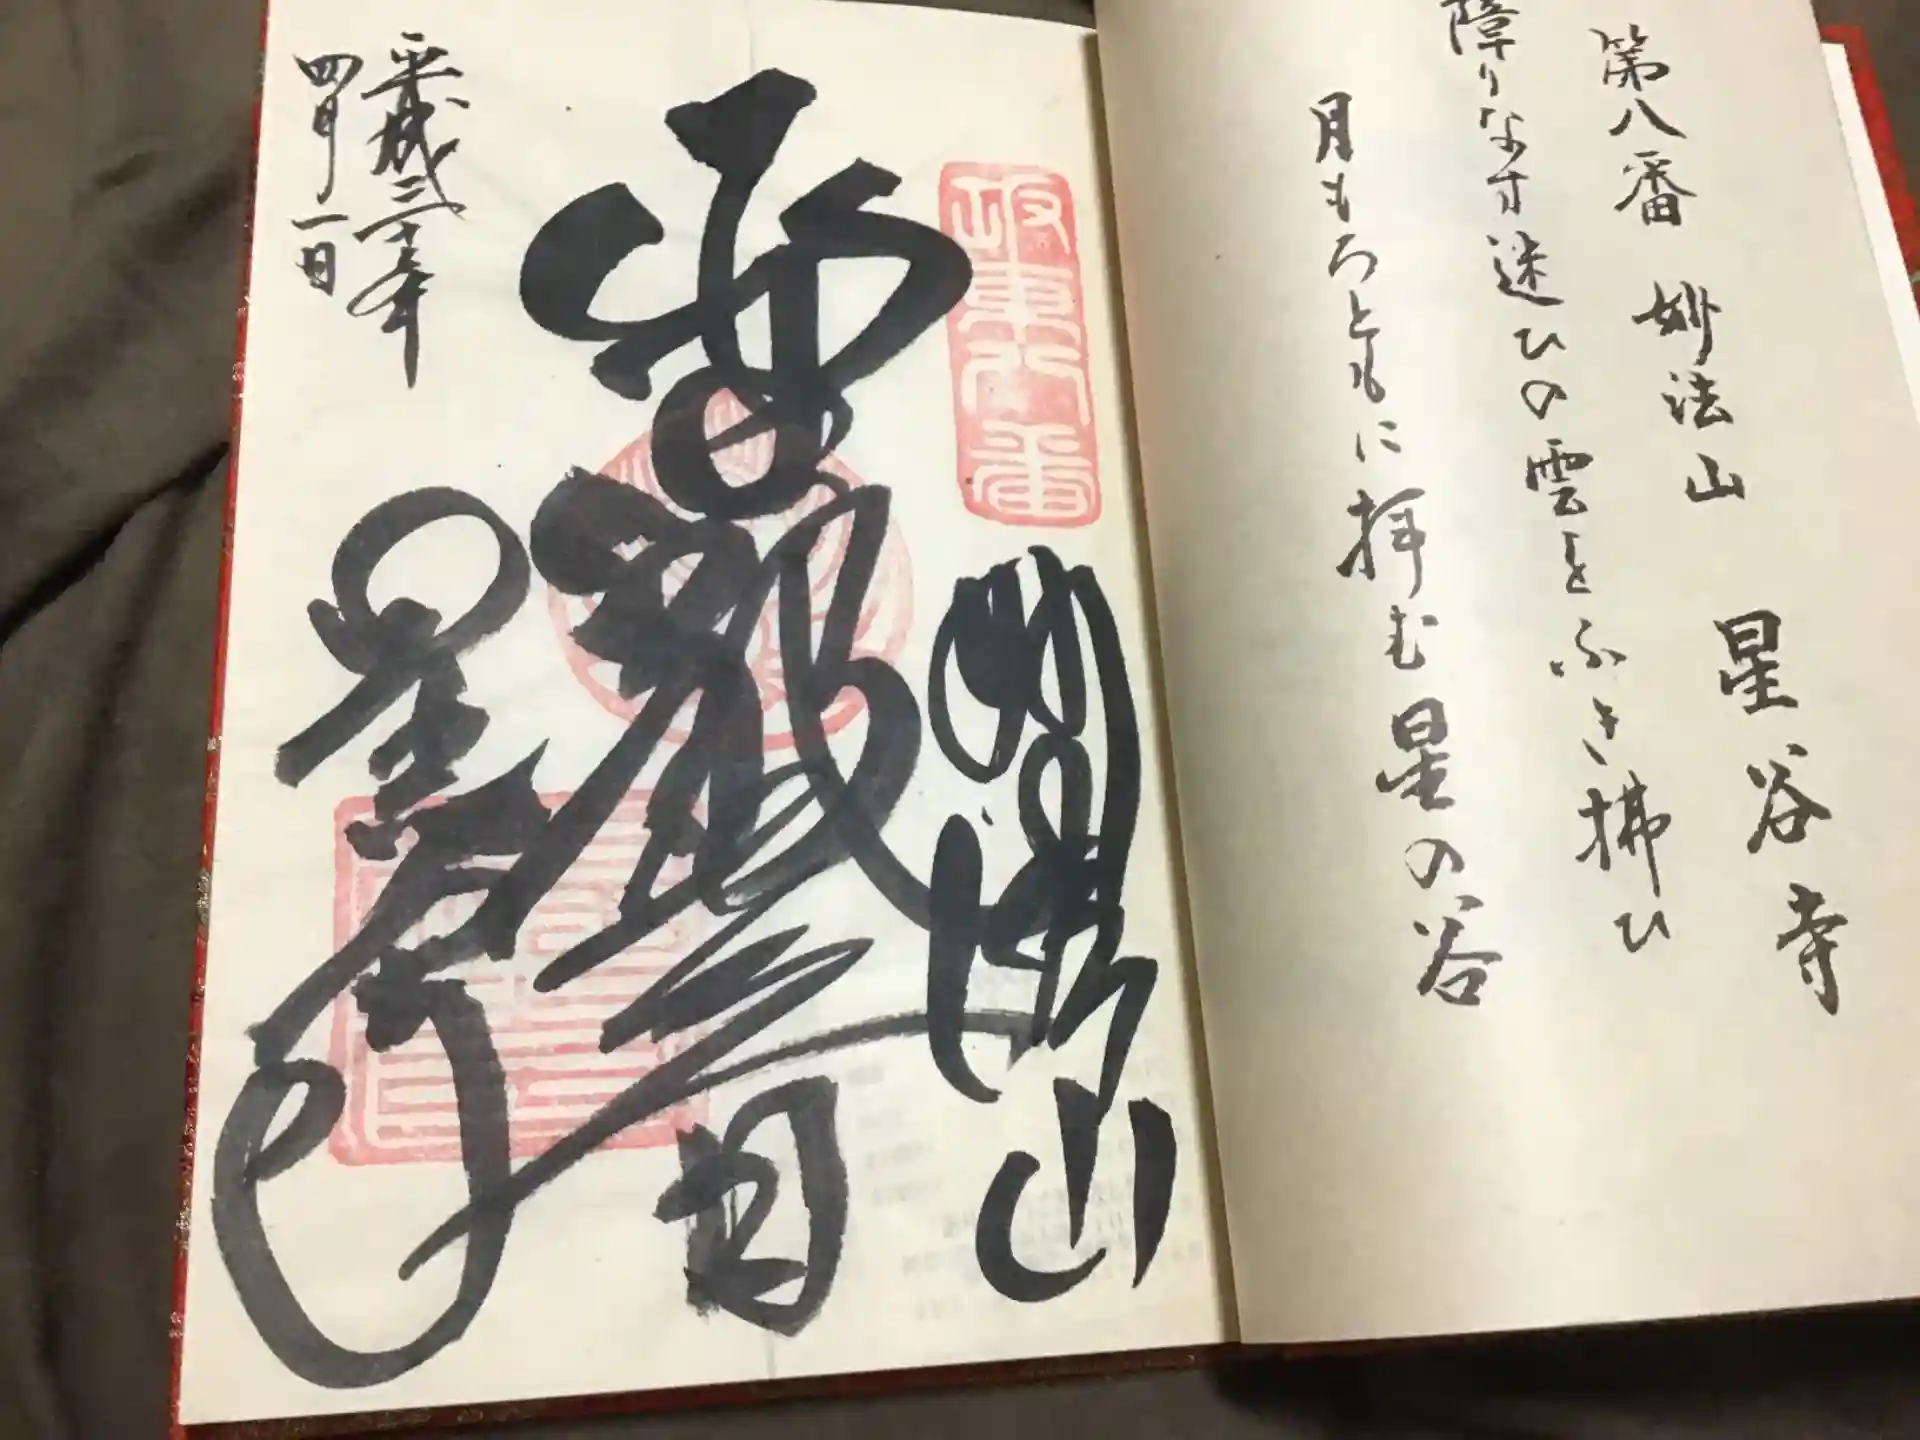 第八番 妙法山 星谷寺
障りなす迷ひの雲をふき拂ひ
月もろともに拝む星の谷
坂東八番
妙法山
聖觀音
星谷寺
平成三十年
四月一日